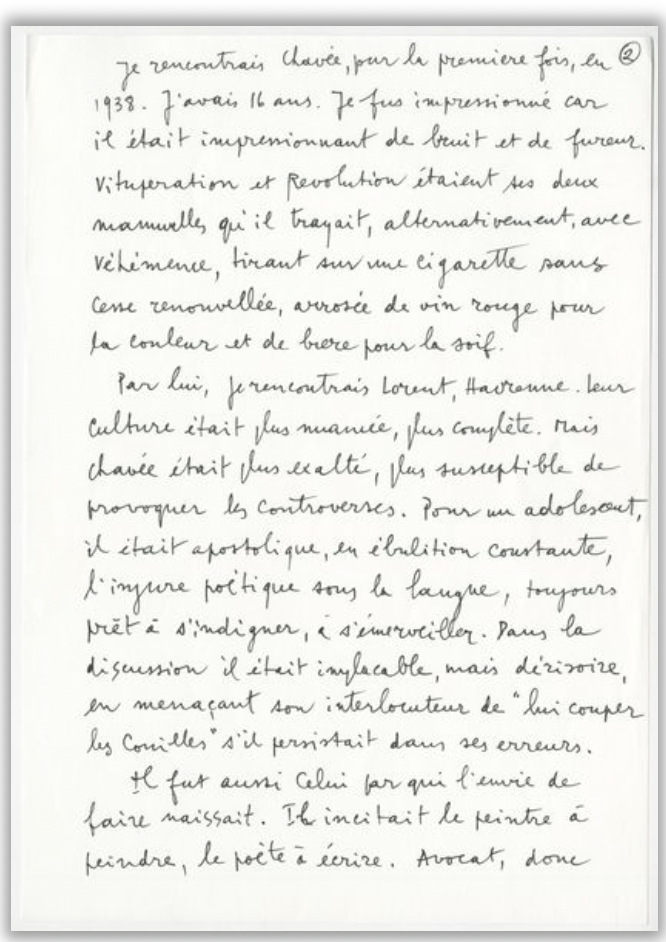 Je rencontrais Chavée, pour la première fois, en ②
1938. J'avais 16 ans. Je fus impressionné car
il était impressionnant de bruit et de fureur.
Vituperation et Revolution étaient ses deux
mamelles qu'il trayait, alternativement, avec
véhémence, tirant sur une cigarette sans
cesse renouvellée, arrosée de vin rouge pour
la couleur et de biere pour la soif.
Par lui, je rencontrais Lorent, Havrenne. Leur
culture était plus nuancée, plus complète. Mais
Chavée était plus exalté, plus susceptible de
provoquer les controverses. Pour un adolescent,
il était apostolique, en ébulition constante,
l'injure poétique sous la langue, toujours
prêt à s'indigner, à s'émerveiller. Dans la
discussion il était implacable, mais dérisoire,
en menaçant son interlocuteur de "lui couper
les Couilles" s'il persistait dans ses erreurs.
Il fut aussi Celui par qui l'envie de
faire naissait. Il incitait le peintre à
peindre, le poète à écrire. Avocat, donc